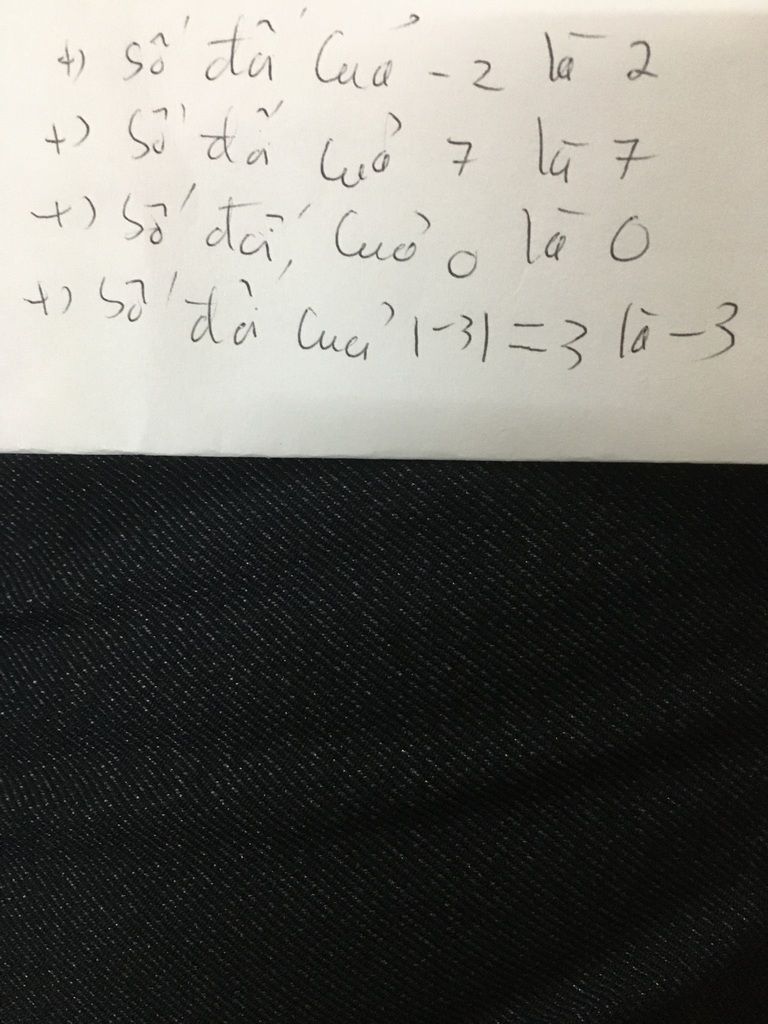 +) số đối của -2 là 2
+) số đối của 7 là 7
+) số đối của 0 là 0
+) số đối của |-3| = 3 là -3